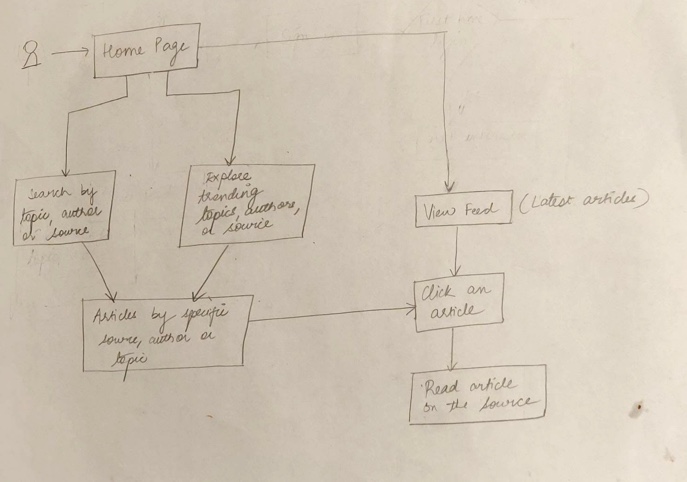 Home Page
Search by
topic, author
or source
Explore
trending
topics, authors,
or source
View Feed (Latest articles)
Articles by specific
source, author or
topic
Click an
article
Read article
on the source